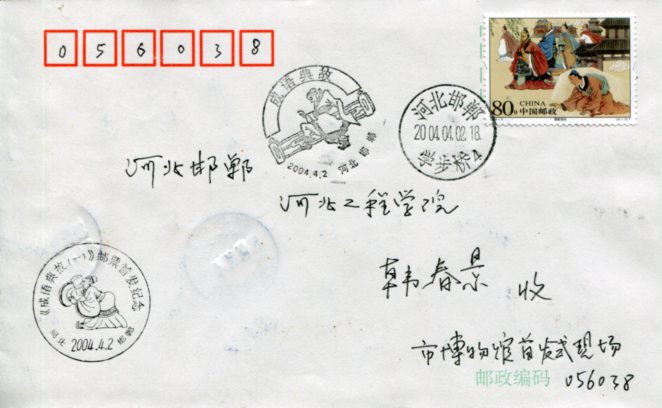 056038
成语典故
2004.4.2 河北 邯郸
河北邯郸
2004.04.02.18
学步桥4
80分 CHINA
中国邮政
河北邯郸
河北工程学院
韩春景 收
《成语典故(一)》邮票首发纪念
河北 2004.4.2 邯郸
市博物馆首发式现场
邮政编码 056038